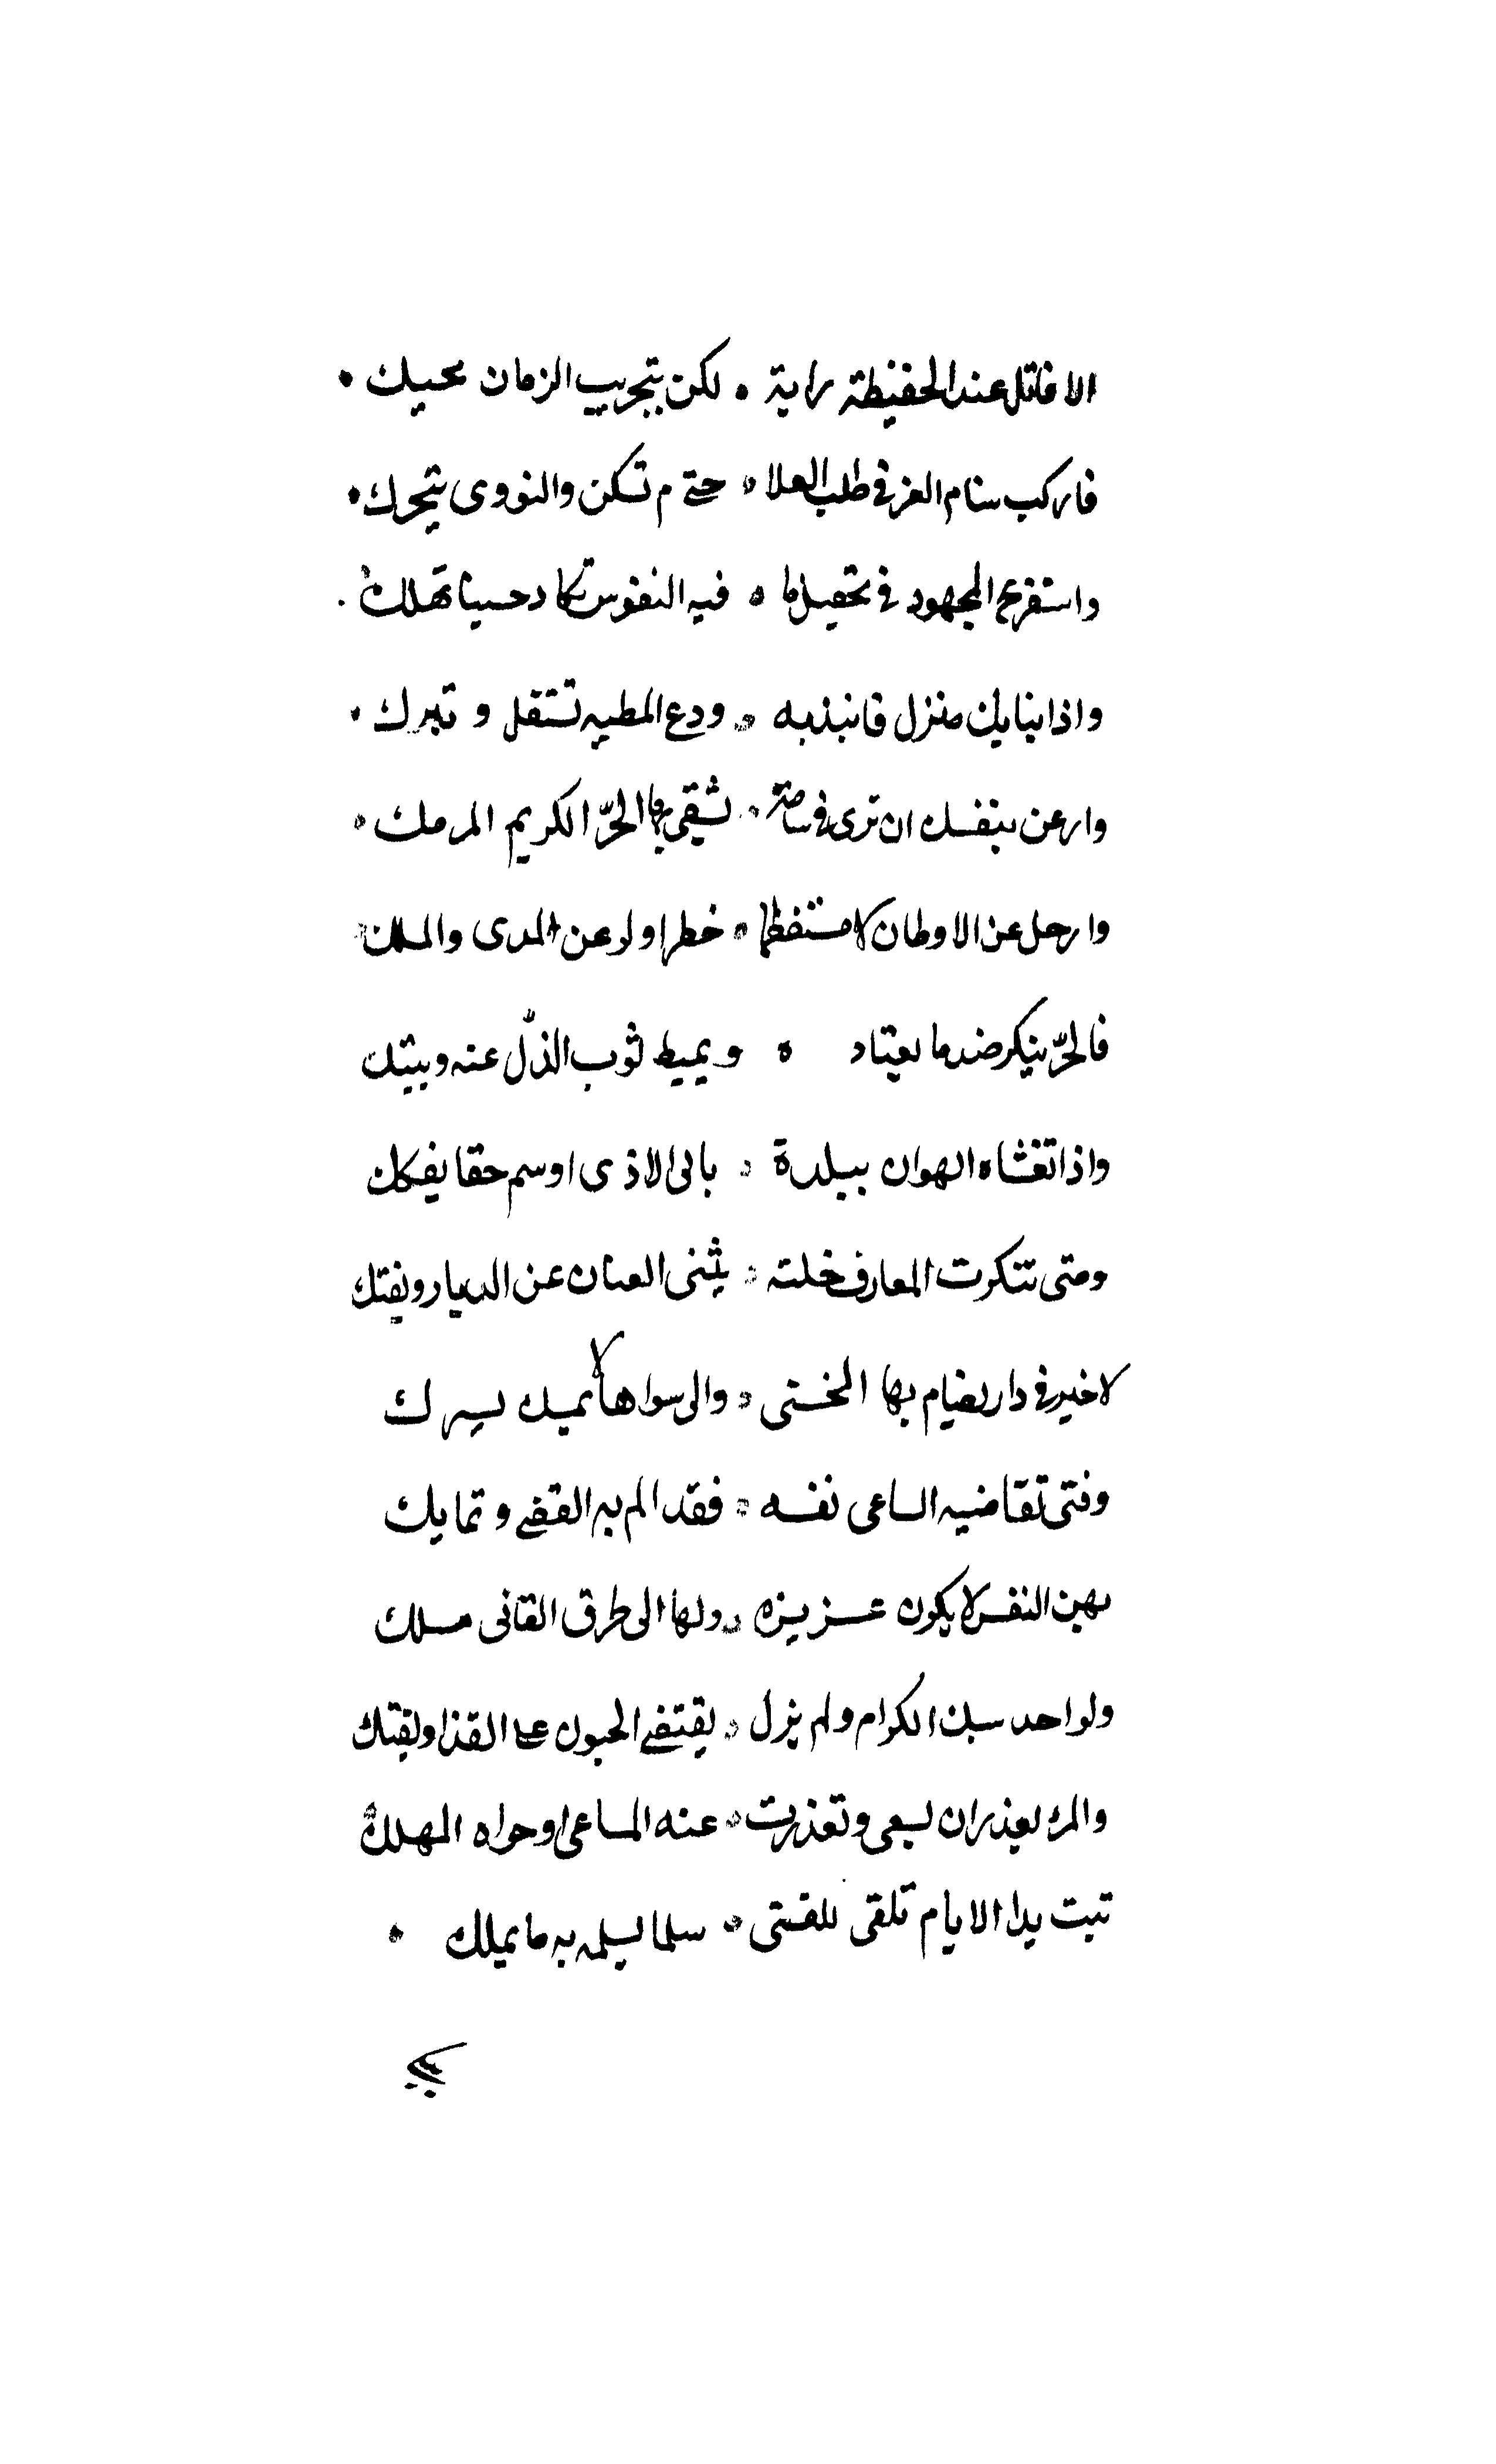 الا فاتل عند الحفيظة راية • لكن بتجريب الزمان محيك •
فاركب سنام العز في طلب العلا • حتى م تسكن والنووى يتحرك •
واستفرع المجهود في تحصيل ما • فيه النفوس تكاد حسينا تهلك .
واذا بنا بك منزل فانبذ به • ودع المطيه تستقل و تبرك •
وارعن بنفسك ان ترى في ساحة • تشقى بها الحرّ الكريم المرمك •
وارحل عن الاوطان لا مستفظا • خطرا ولو عن المدى والملك
فالحرّ ينكر ضد ما يعتاد • و يميط ثوب الذلّ عنه ويبتك
واذا تغشاه الهوان ببلدة • بالى الاذى اوسم حقا يفكك
ومتى تنكرت المعارف خلته • يثنى العنان عن الديار ويفتك
لا خير في دار يضام بها الختى • والى سواها لا يميك يسرك
وفتى تقاضيه الساعى نفسه • فقد الم به القضى و تمايك
بهين النفس لا يكون عزيزه • ولها الى طرق القانى مسلك
ولواحد سبك الكرام ولم يزل • يقتضى الحبون على القذا ويفتك
والمرء يعذر ان يسعى وتعذرت • عنه المساعى او حواه المهلك
تبت يدا الايام تلقى للفتى • سلما ليسلمه به ما يملك •